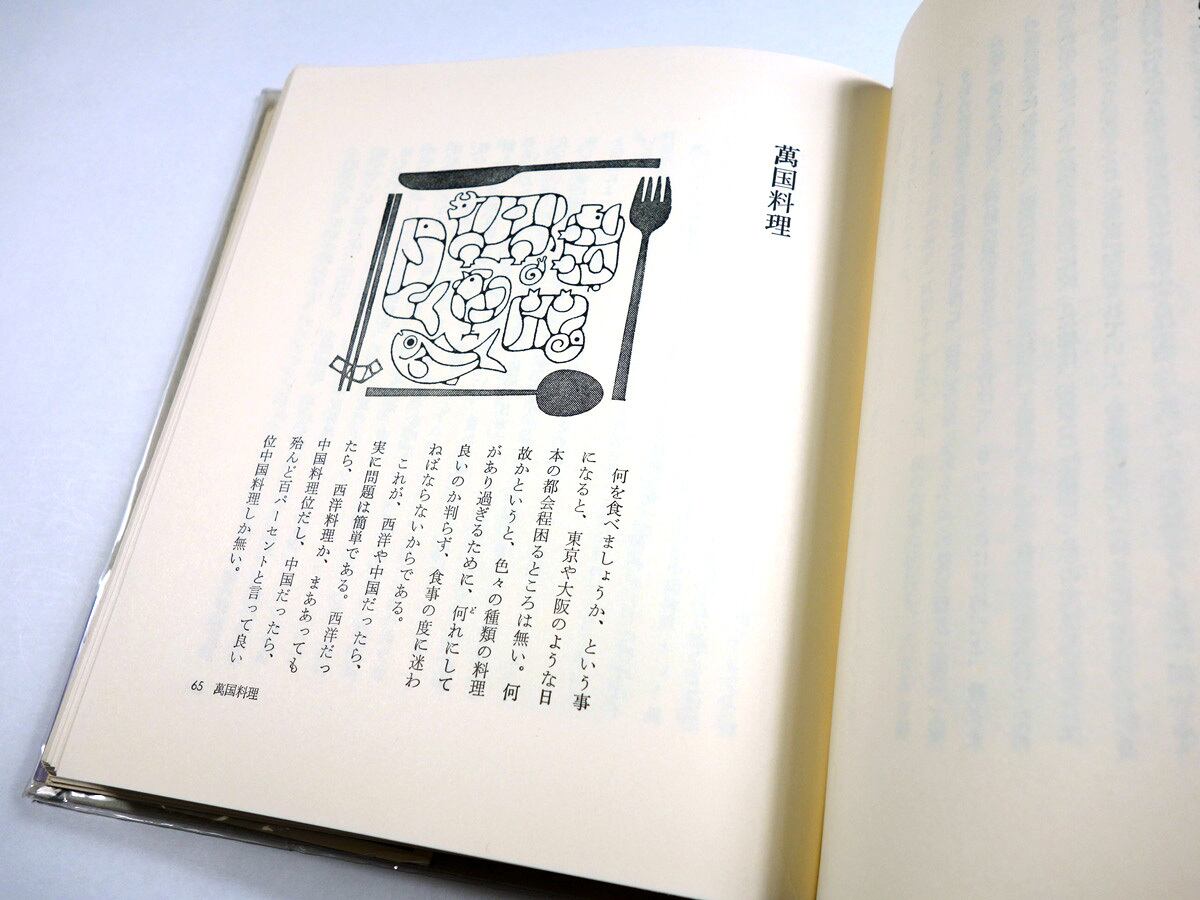 萬国料理
何を食べましょうか、という事
になると、東京や大阪のような日
本の都会程困るところは無い。何
故かというと、色々の種類の料理
があり過ぎるために、何れにして
ど
良いのか判らず、食事の度に迷わ
ねばならないからである。
これが、西洋や中国だったら、
実に問題は簡単である。西洋だっ
たら、西洋料理か、まああっても
中国料理位だし、中国だったら、
殆んど百パーセントと言って良い
位中国料理しか無い。
65 萬国料理